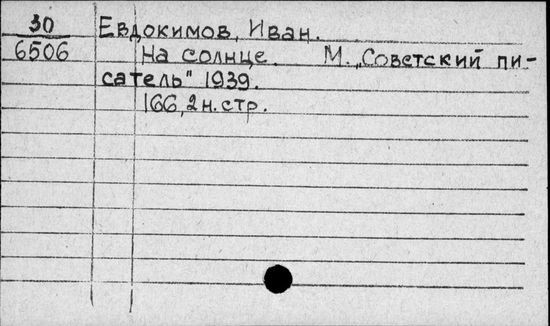 30 Евдокимов, Иван.
6506 На солнце. М. „Советский пи-
сатель" 1939.
166, 2 н. стр.